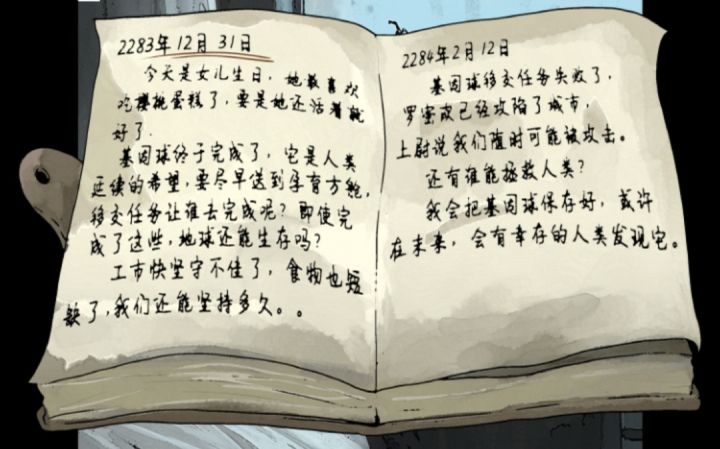 2283年 12月 31日
今天是女儿生日，她最喜欢
吃樱桃蛋糕了，要是她还活着就
好了.
基因球终于完成了，它是人类
延续的希望，要尽早送到孕育方舱，
移交任务让谁去完成呢？即使完
成了这些，地球还能生存吗？
工市快坚守不住了，食物也短
缺了，我们还能坚持多久。。
2284年2月12日
基因球移交任务失败了，
罗密欧已经攻陷了城市，
上尉说我们随时可能被攻击。
还有谁能拯救人类？
我会把基因球保存好，或许
在未来，会有幸存的人类发现它。